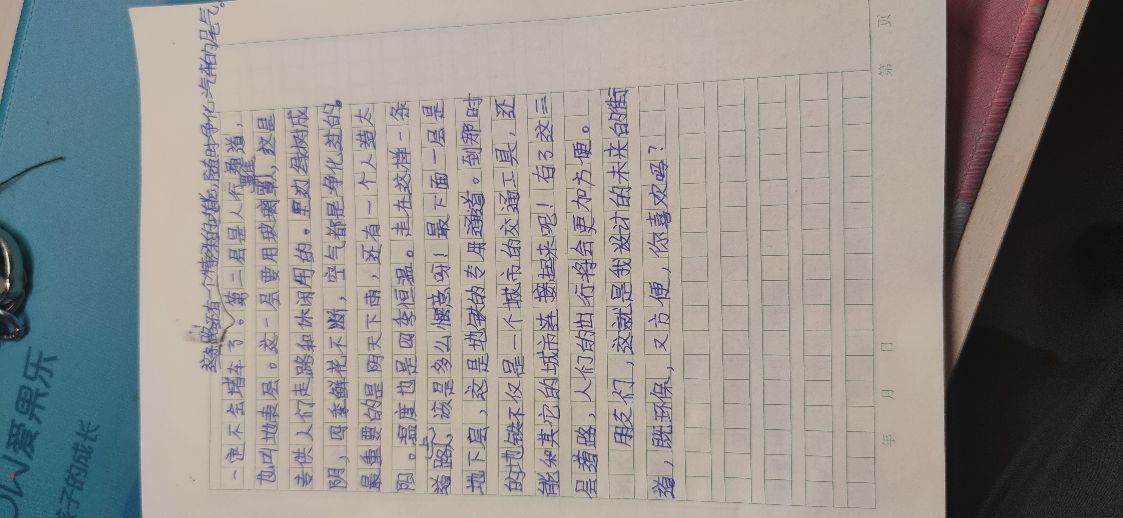 这条路还有一个情况的功能，随时净化汽车的尾气。
一定不会堵车了。第二层是人行通道，
也叫地表层。这一层要用玻璃罩罩，这是
专供人们走路和休闲用的。里边绿树成
阴，四季鲜花不断，空气都是净化过的。
最重要的是阴天下雨，还有一个人造太
阳。温度也是四季恒温。走在这样一条
道路上，该是多么惬意呀！最下面一层是
地下层，这是地铁的专用通道。到那时
的地铁不仅是一个城市的交通工具，还
能和其它的城市连接起来吧！有了这三
层道路，人们的出行将会更加方便。
朋友们，这就是我设计的未来的街
道，既环保，又方便，你喜欢吗？
年 月 日
第 页
爱果乐
孩子的成长